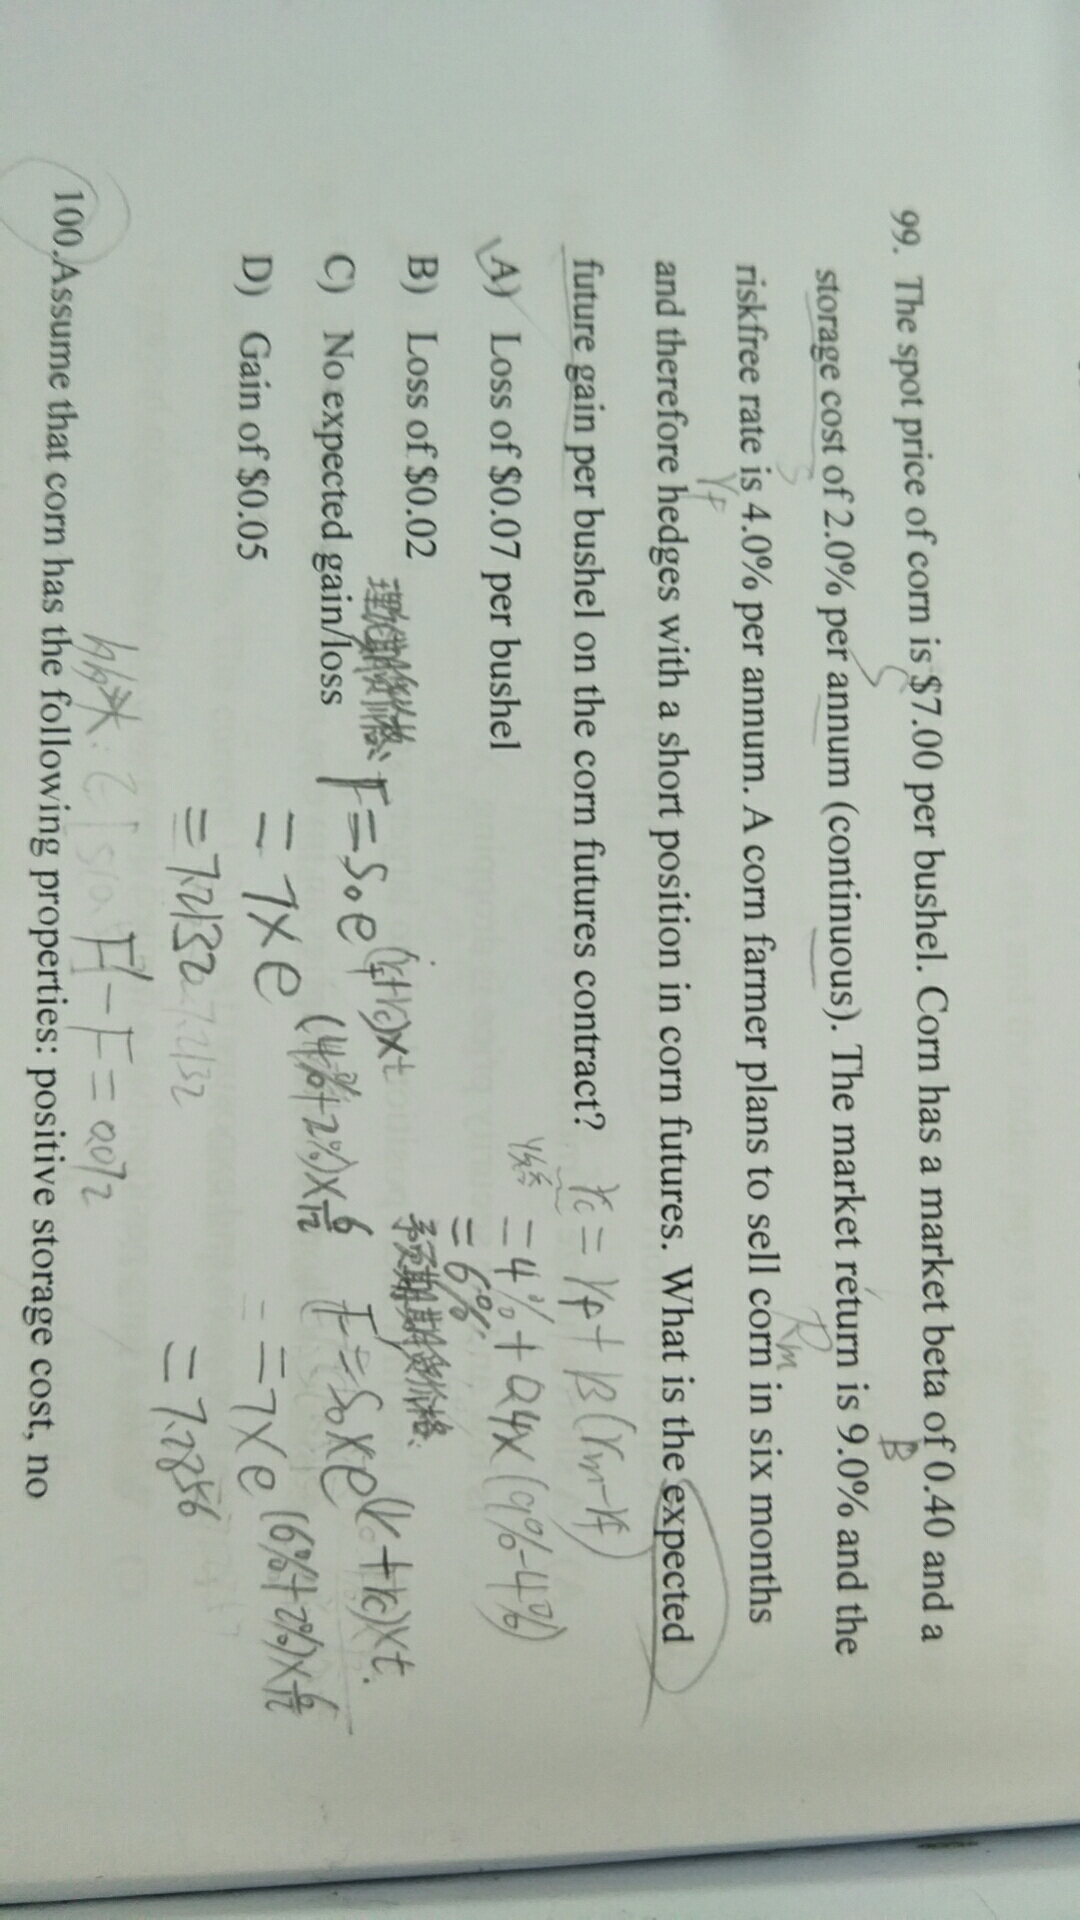 99. The spot price of corn is $7.00 per bushel. Corn has a market beta of 0.40 and a
B
storage cost of 2.0% per annum (continuous). The market return is 9.0% and the
Rm
riskfree rate is 4.0% per annum. A corn farmer plans to sell corn in six months
rf
and therefore hedges with a short position in corn futures. What is the expected
future gain per bushel on the corn futures contract?
rc = rf + B(rm-rf)
A) Loss of $0.07 per bushel
= 4% + 0.4×(9%-4%)
= 6%
B) Loss of $0.02
C) No expected gain/loss
F = S₀e
F' = S₀×e
D) Gain of $0.05
= 7×e (4%+2%)×6/12
= 7×e (6%+2%)×6/12
= 7.2132 7.2132
= 7.2856
F'-F = 0.072
100.Assume that corn has the following properties: positive storage cost, no